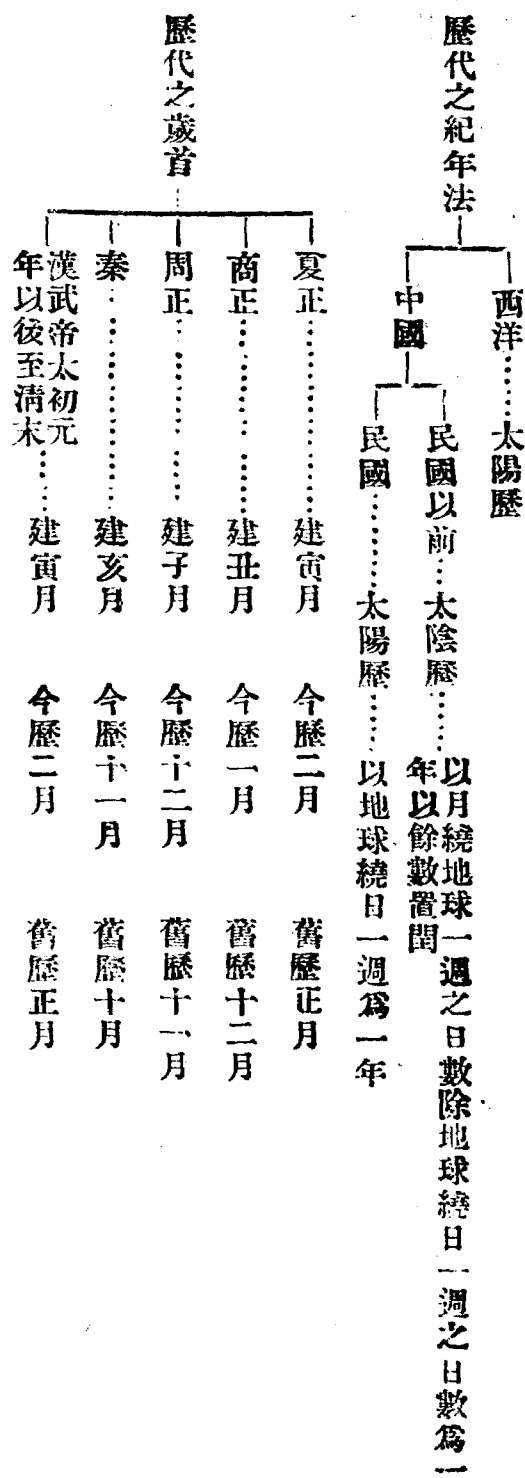 歷代之紀年法
西洋……太陽歷
中國
民國以前…太陰歷……以月繞地球一週之日數除地球繞日一週之日數爲一
年以餘數置閏
民國……太陽歷……以地球繞日一週爲一年
歷代之歲首
夏正……建寅月 今歷二月 舊歷正月
商正……建丑月 今歷一月 舊歷十二月
周正……建子月 今歷十二月 舊歷十一月
秦……建亥月 今歷十一月 舊歷十月
漢武帝太初元
年以後至清末……建寅月 今歷二月 舊歷正月